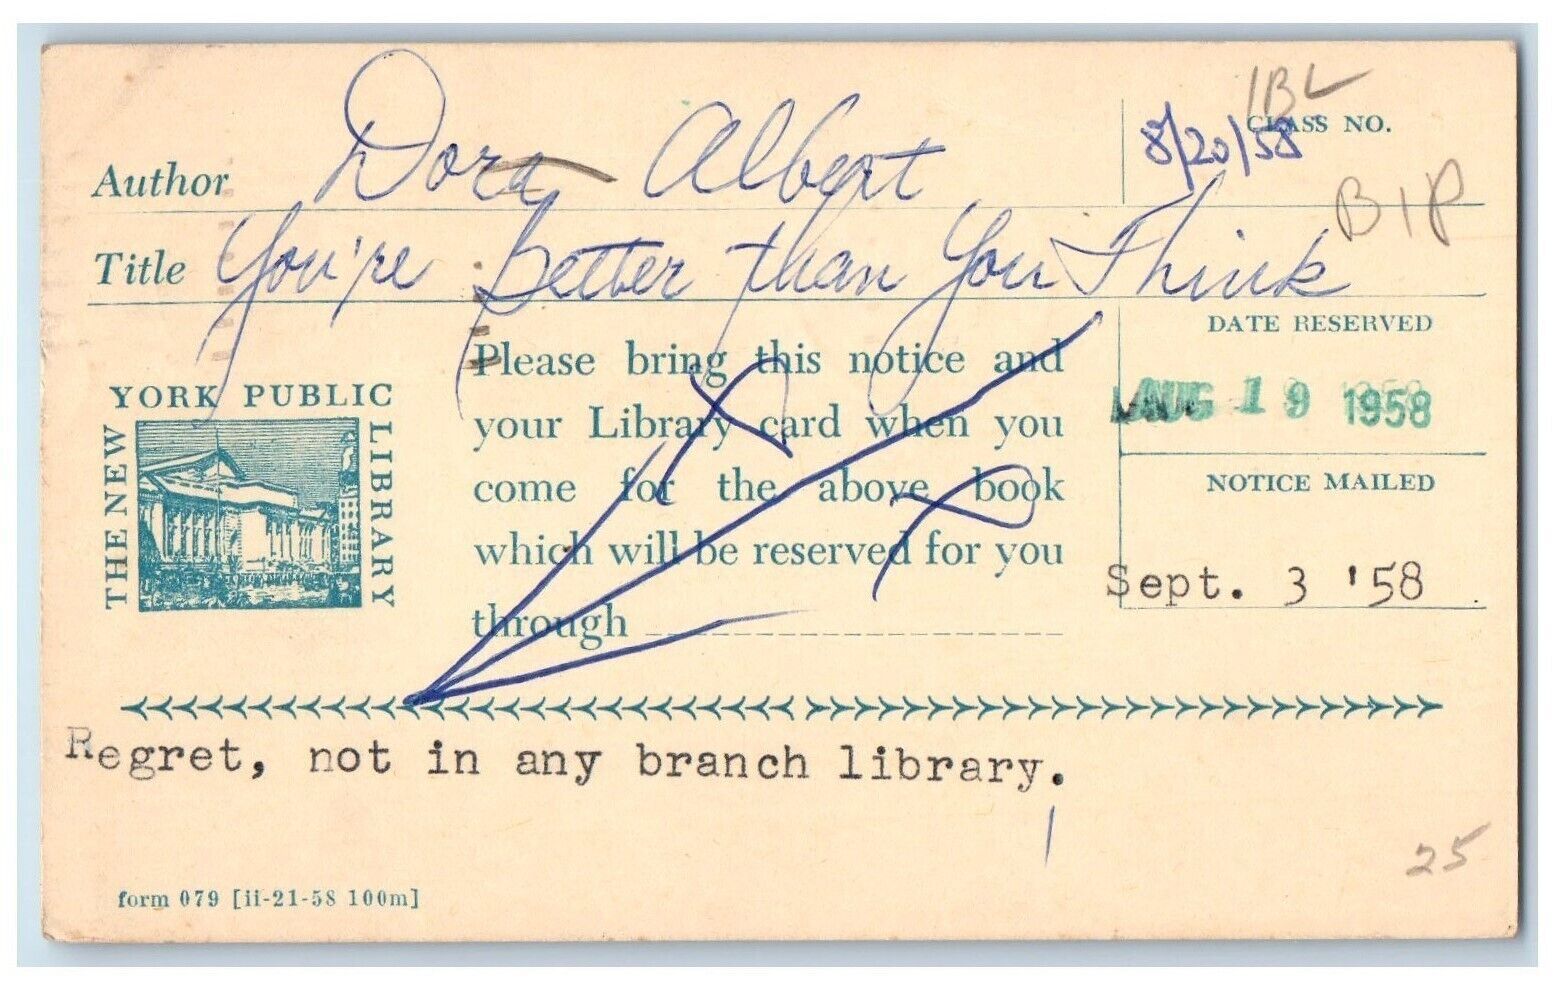 IBL
8/20/58 CLASS NO.
Author Dora Albert
BIP
Title You're Better than You Think
DATE RESERVED
AUG 19 1958
NOTICE MAILED
Sept. 3 '58
THE NEW YORK PUBLIC LIBRARY
Please bring this notice and
your Library card when you
come for the above book
which will be reserved for you
through
Regret, not in any branch library.
25
form 079 [ii-21-58 100m]